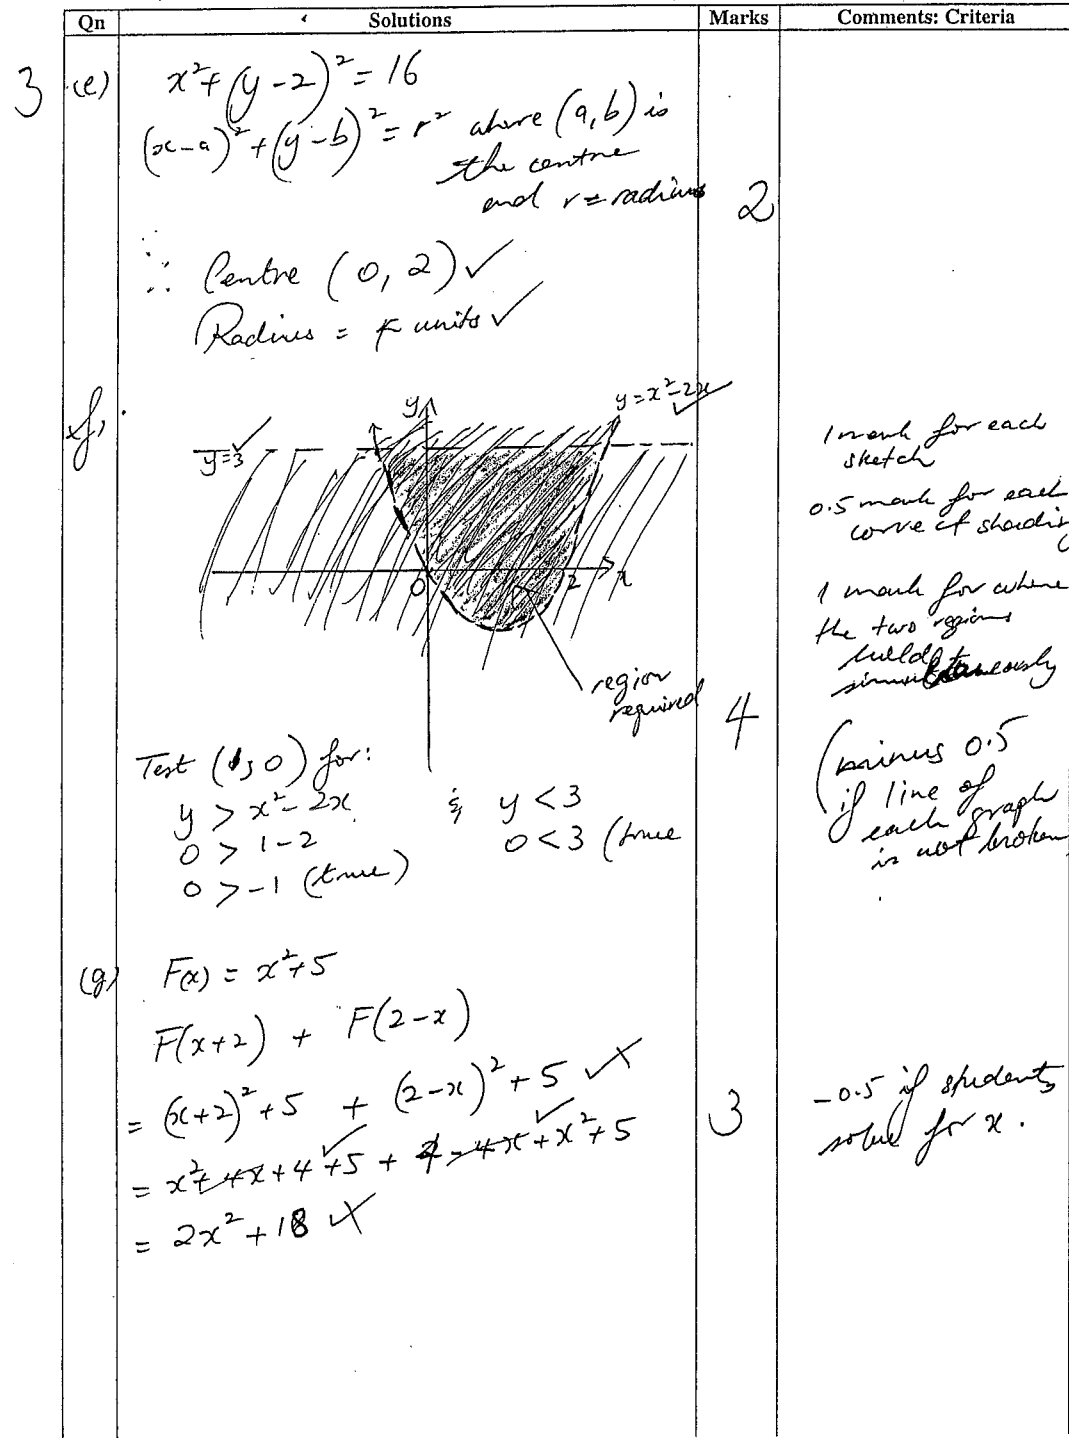 Qn Solutions Marks Comments: Criteria
3 (e) x² + (y - 2)² = 16
(x - a)² + (y - b)² = r² where (a, b) is
the centre
and r = radius
2
∴ Centre (0, 2) ✓
Radius = 4 units ✓
(f)
y
y = x² - 2x ✓
y = 3 ✓
0 2 x
region
required
4
1 mark for each
sketch
0.5 mark for each
curve of shading
1 mark for where
the two regions
hold
simultaneously
(minus 0.5
if line of
each graph
is not broken
Test (1, 0) for:
y > x² - 2x & y < 3
0 > 1 - 2 0 < 3 (true
0 > -1 (true)
(g) F(x) = x² + 5
F(x+2) + F(2-x)
= (x+2)² + 5 + (2-x)² + 5 ✓
= x² + 4x + 4 + 5 + 4 - 4x + x² + 5
= 2x² + 18 ✓
3
-0.5 if students
solve for x.